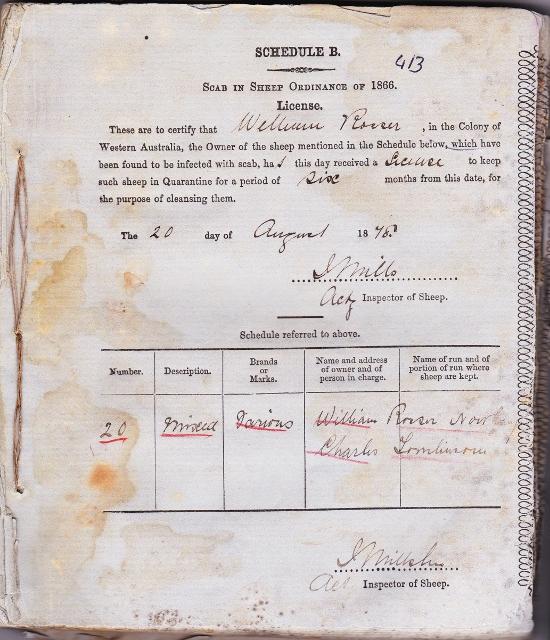 SCHEDULE B.
413
SCAB IN SHEEP ORDINANCE OF 1866.
License.
These are to certify that William Rosser, in the Colony of
Western Australia, the Owner of the sheep mentioned in the Schedule below, which have
been found to be infected with scab, has this day received a License to keep
such sheep in Quarantine for a period of six months from this date, for
the purpose of cleansing them.
The 20 day of August 1878
J Mills
Actg Inspector of Sheep.
Schedule referred to above.
Number. Description. Brands or Marks. Name and address of owner and of person in charge. Name of run and of portion of run where sheep are kept.
20 Mixed Various William Rosser
Charles Tomlinson
Inspector of Sheep.